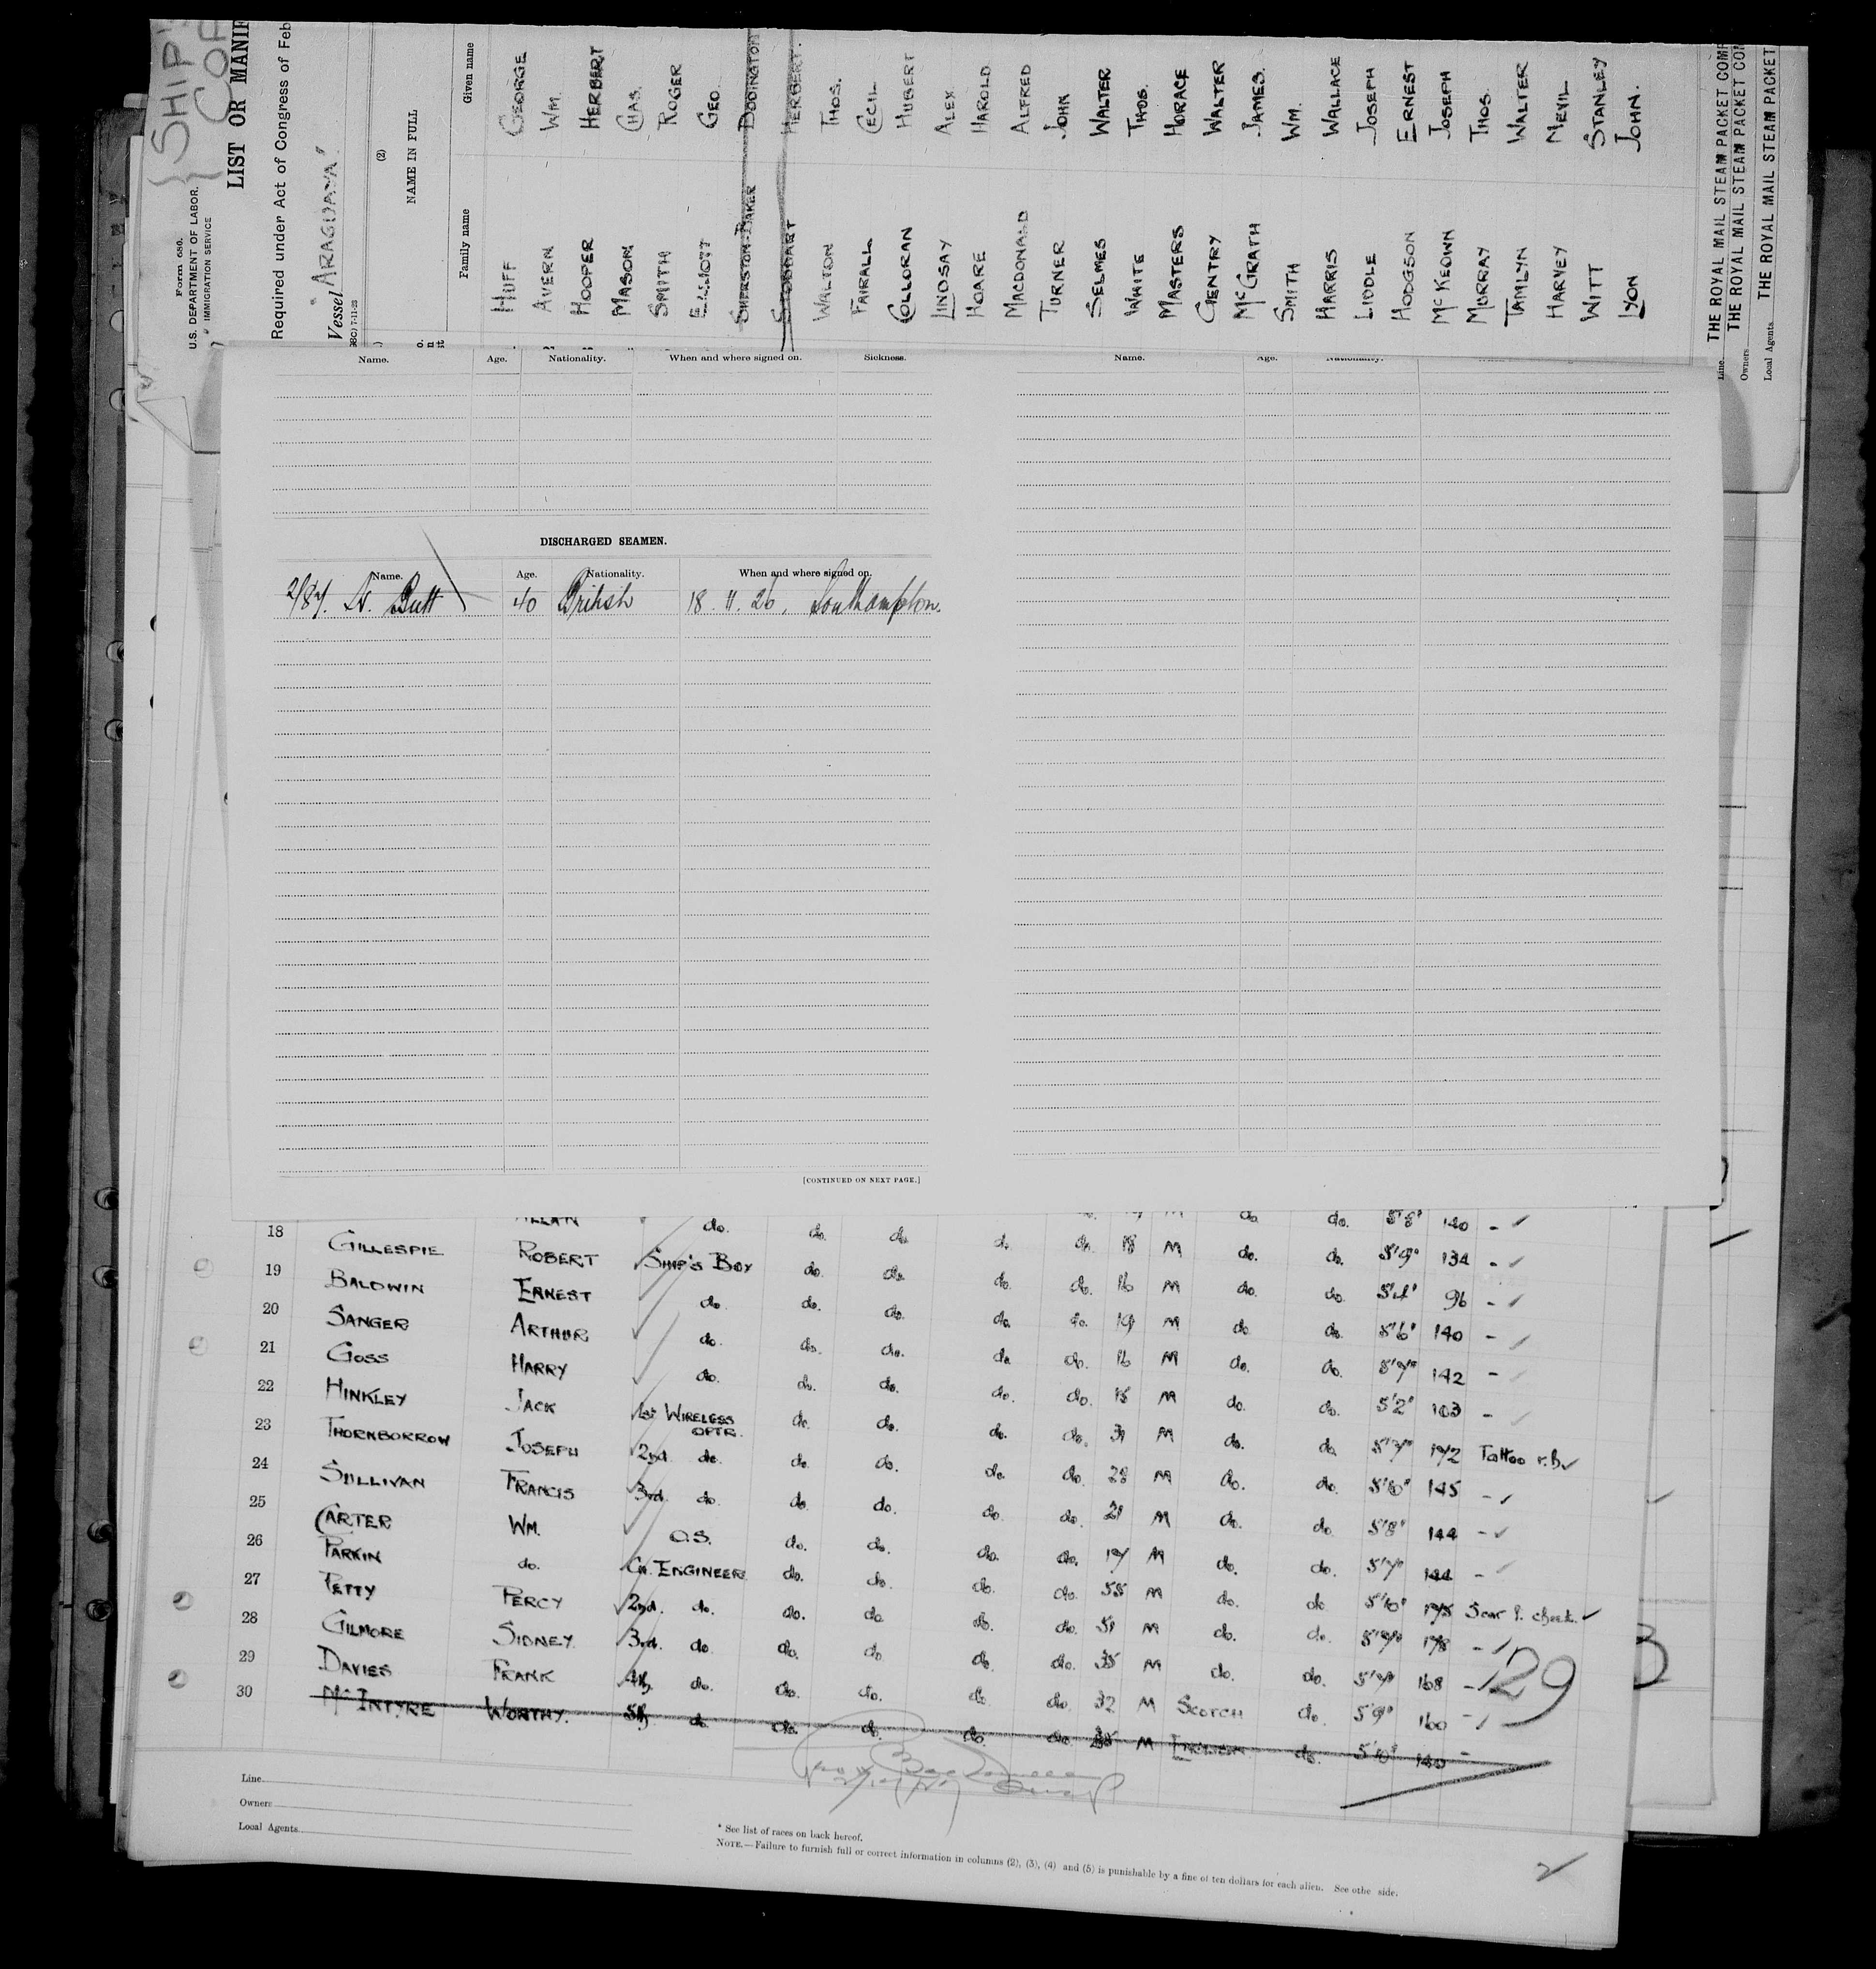 { SHIP'S
COP
Form 680.
U.S. DEPARTMENT OF LABOR.
IMMIGRATION SERVICE
LIST OR MANIF
Required under Act of Congress of Feb
Vessel "ARAGUAYA"
(2)
NAME IN FULL
Family name Given name
HUFF GEORGE
AVERN WM.
HOOPER HERBERT
MASON CHAS.
SMITH ROGER
ELLIOTT GEO.
SHERSTON-BAKER DODINGTON
STODDART HERBERT.
WALTON THOS.
FAIRALL CECIL
COLLORAN HUBERT
LINDSAY ALEX
HOARE HAROLD
MACDONALD ALFRED
TURNER JOHN
SELMES WALTER
WHITE THOS.
MASTERS HORACE
GENTRY WALTER
McGRATH JAMES.
SMITH WM.
HARRIS WALLACE
LIDDLE JOSEPH
HODGSON ERNEST
McKEOWN JOSEPH
MURRAY THOS.
TAMLYN WALTER
HARVEY MEVIL
WITT STANLEY
LYON JOHN.
Line THE ROYAL MAIL STEAM PACKET COMP
Owners THE ROYAL MAIL STEAM PACKET COM
Local Agents THE ROYAL MAIL STEAM PACKET
Name. Age. Nationality. When and where signed on. Sickness. Name. Age. Nationality.
DISCHARGED SEAMEN.
Name. Age. Nationality. When and where signed on.
Butt 40 British 18.11.26. Southampton.
[CONTINUED ON NEXT PAGE.]
ALLAN do. do. do. do. do. M do. do. 5'8" 140 -
18 GILLESPIE ROBERT SHIP'S BOY do. do. do. do. 18 M do. do. 5'9" 134 -
19 BALDWIN ERNEST do. do. do. do. do. 16 M do. do. 5'4" 96 -
20 SANGER ARTHUR do. do. do. do. do. 19 M do. do. 5'6" 140 -
21 GOSS HARRY do. do. do. do. do. 16 M do. do. 5'7" 142 -
22 HINKLEY JACK 1st WIRELESS OPTR. do. do. do. do. 18 M do. do. 5'2" 103 -
23 THORNBORROW JOSEPH 2nd. do. do. do. do. do. 39 M do. do. 5'7" 172 Tattoo
24 SULLIVAN FRANCIS 3rd. do. do. do. do. do. 28 M do. do. 5'10" 145 -
25 CARTER WM. O.S. do. do. do. do. 21 M do. do. 5'8" 144 -
26 PARKIN do. CH. ENGINEER do. do. do. do. 17 M do. do. 5'7" 144 -
27 PETTY PERCY 2nd. do. do. do. do. do. 55 M do. do. 5'10" 175 Scar cheek.
28 GILMORE SIDNEY 3rd. do. do. do. do. do. 51 M do. do. 178 -
29 DAVIES FRANK 4th. do. do. do. do. do. 35 M do. do. 5'7" 168 -
30 McINTYRE WORTHY. 5th. do. do. do. do. do. 32 M SCOTCH do. 5'9" 160 -
do. do. do. do. M ENGLISH do. 5'10" 140 -
129
Line
Owners
Local Agents
* See list of races on back hereof.
NOTE.—Failure to furnish full or correct information in columns (2), (3), (4) and (5) is punishable by a fine of ten dollars for each alien. See othe side.